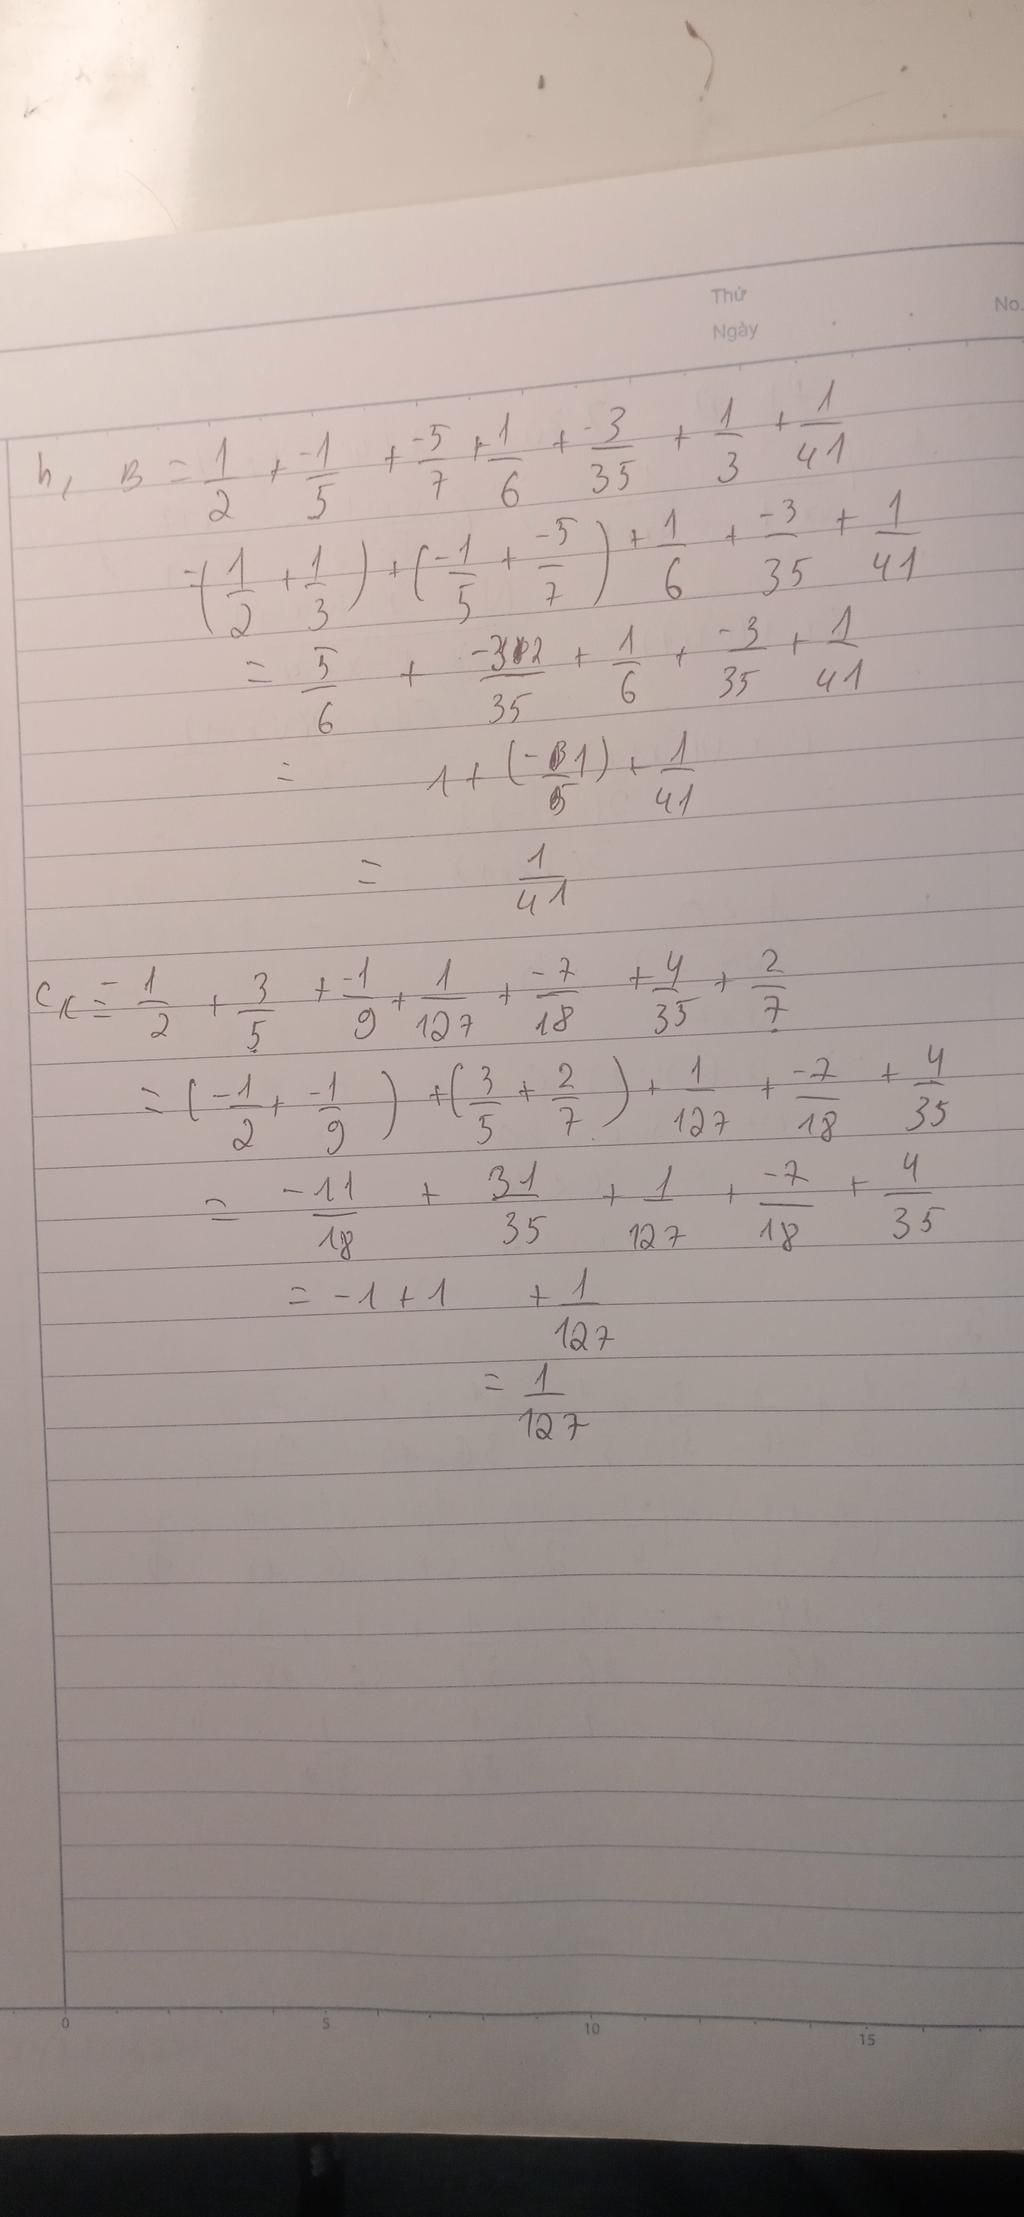 Thứ
Ngày
No.
b, B = 1/2 + -1/5 + -5/7 + 1/6 + -3/35 + 1/3 + 1/41
= (1/2 + 1/3) + (-1/5 + -5/7) + 1/6 + -3/35 + 1/41
= 5/6 + -32/35 + 1/6 + -3/35 + 1/41
= 1 + (-1) + 1/41
= 1/41
c, = -1/2 + 3/5 + -1/9 + 1/127 + -7/18 + 4/35 + 2/7
= (-1/2 + -1/9) + (3/5 + 2/7) + 1/127 + -7/18 + 4/35
= -11/18 + 31/35 + 1/127 + -7/18 + 4/35
= -1 + 1 + 1/127
= 1/127
0 5 10 15